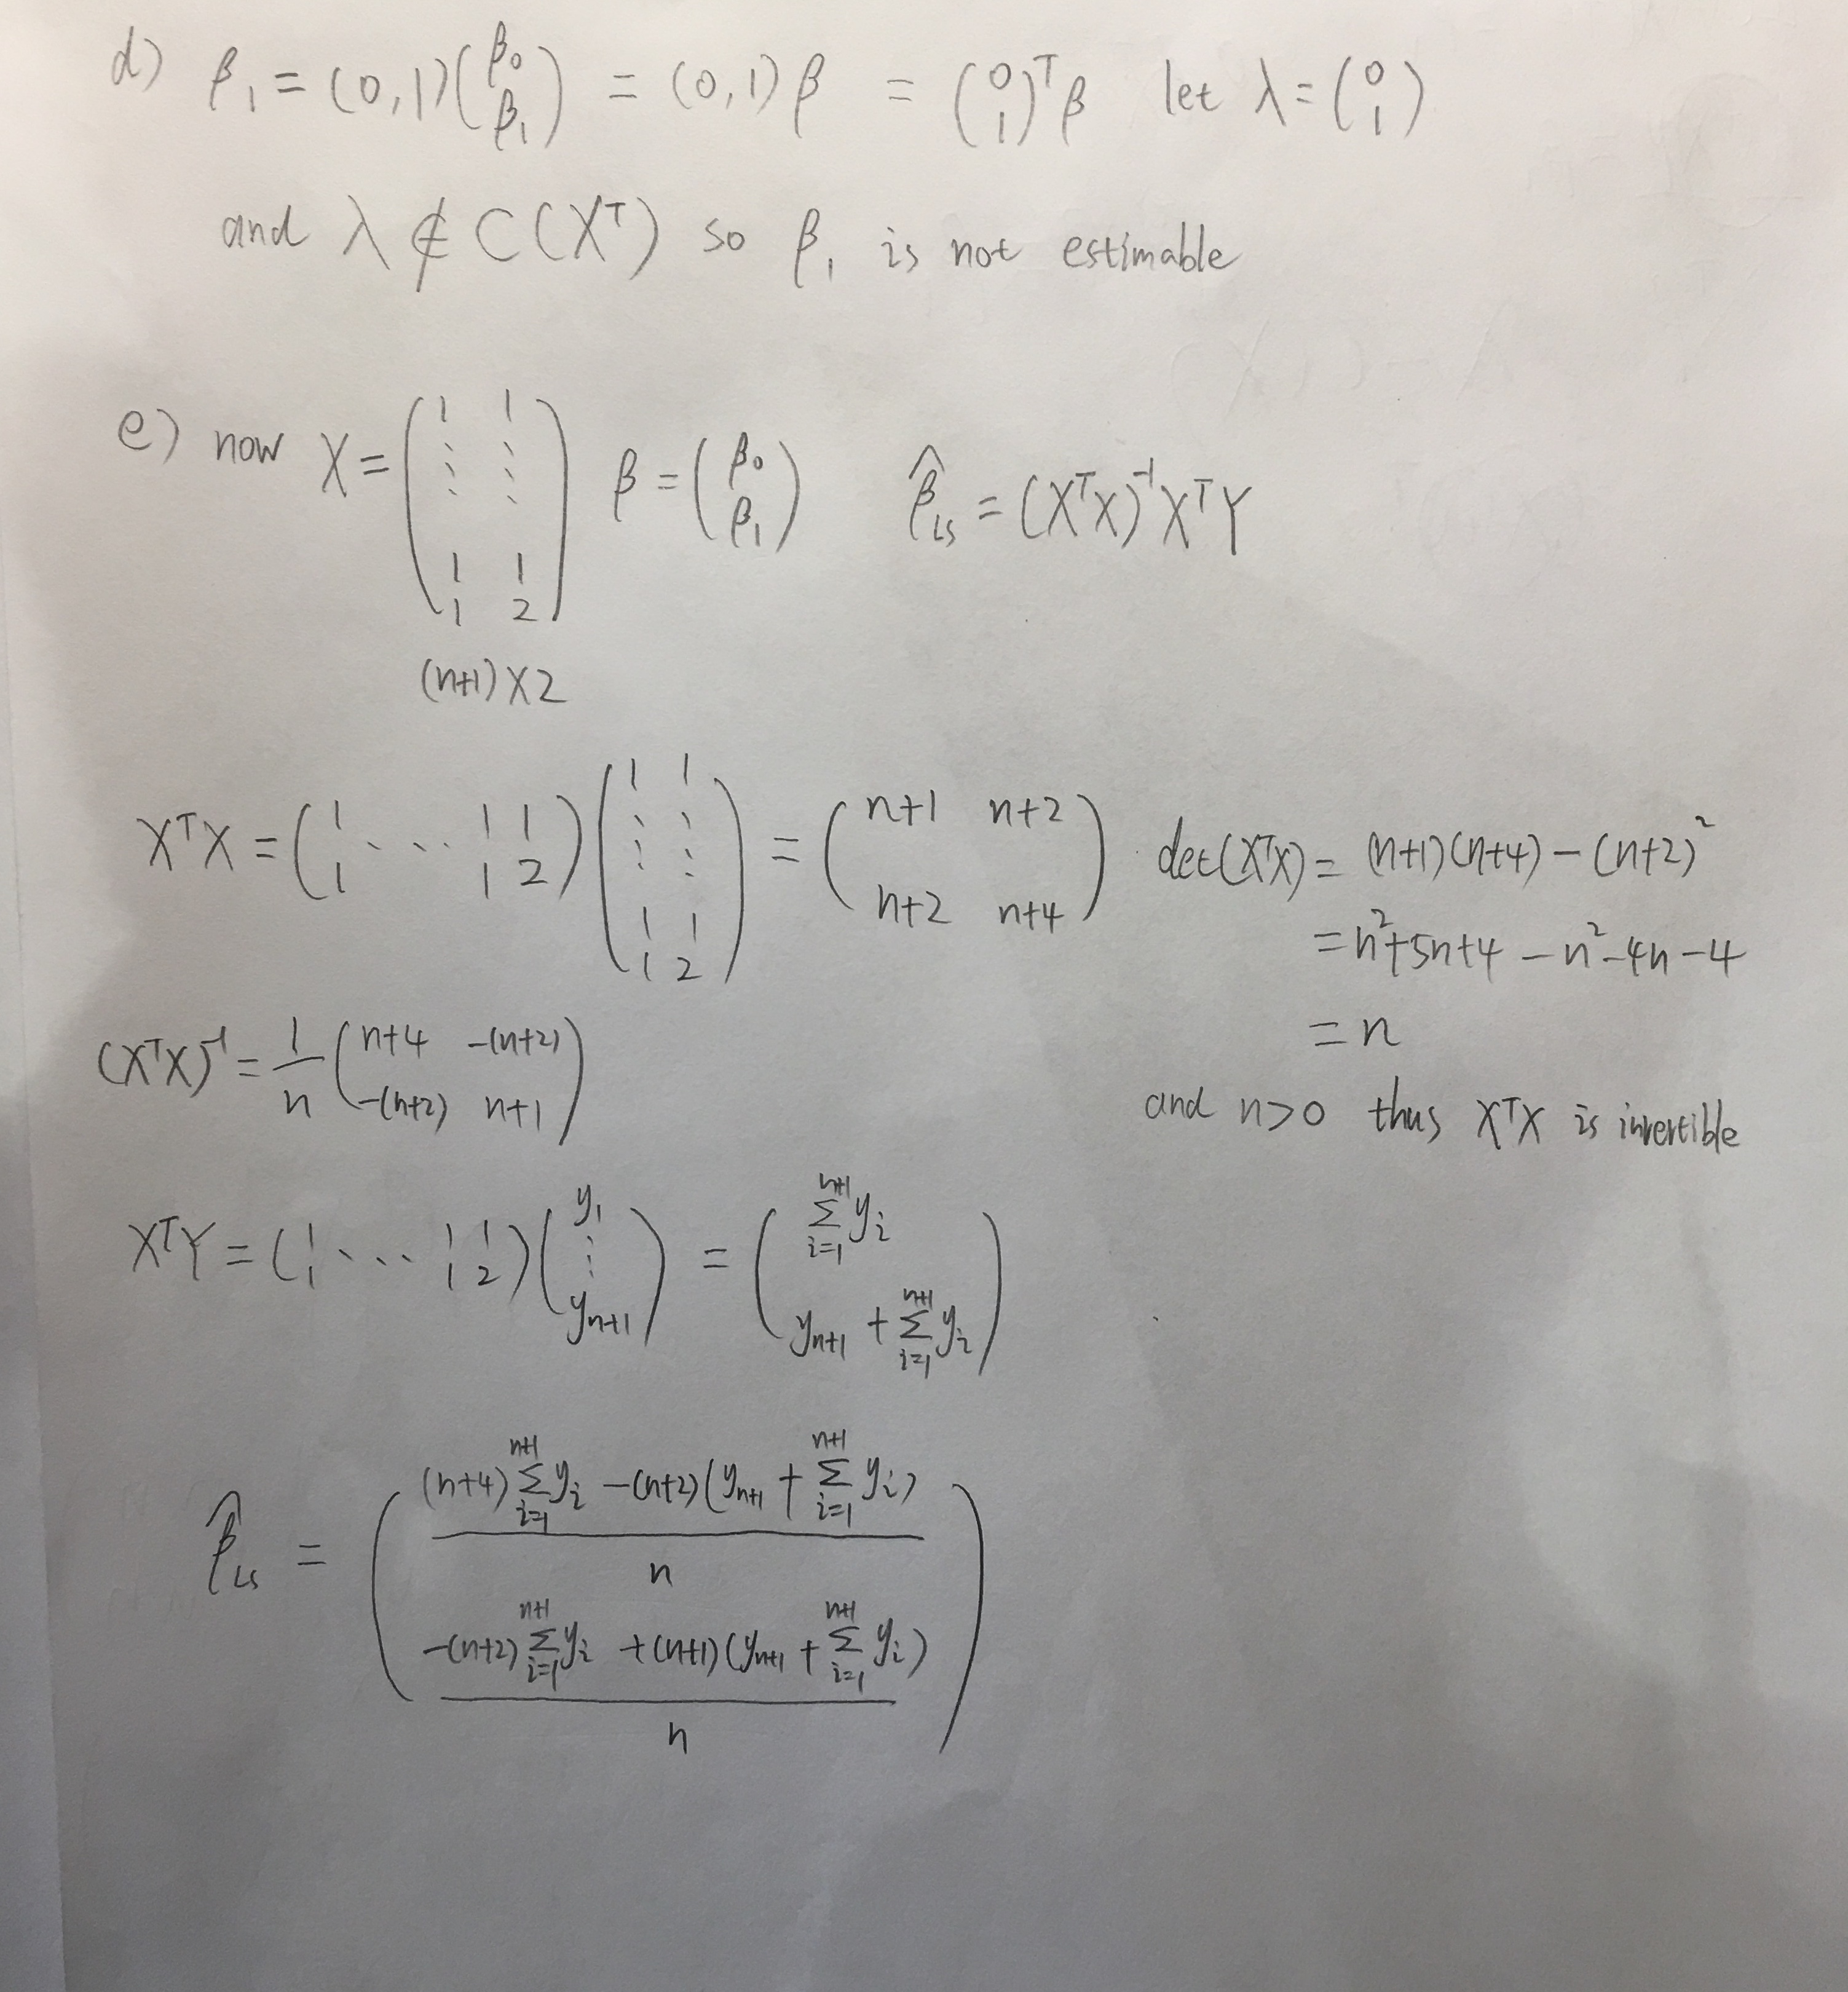 d) β₁ = (0,1)(β₀ β₁) = (0,1)β = (0 1)ᵀβ let λ = (0 1)
and λ ∉ C(Xᵀ) so β₁ is not estimable
e) now X = (1 1 ⋮ ⋮ 1 1 1 2) β = (β₀ β₁) β̂_LS = (XᵀX)⁻¹XᵀY
(n+1)×2
XᵀX = (1 ... 1 1 1 1 2)(1 1 ⋮ ⋮ 1 1 1 2) = (n+1 n+2 n+2 n+4) det(XᵀX) = (n+1)(n+4) − (n+2)²
= n²+5n+4 − n²−4n−4
= n
and n>0 thus XᵀX is invertible
(XᵀX)⁻¹ = 1/n (n+4 −(n+2) −(n+2) n+1)
XᵀY = (1 ... 1 1 1 1 2)(y₁ ⋮ yₙ₊₁) = (∑ᵢ₌₁ⁿ⁺¹ yᵢ yₙ₊₁ + ∑ᵢ₌₁ⁿ⁺¹ yᵢ)
β̂_LS = ( (n+4)∑ᵢ₌₁ⁿ⁺¹ yᵢ −(n+2)(yₙ₊₁ + ∑ᵢ₌₁ⁿ⁺¹ yᵢ) / n
−(n+2)∑ᵢ₌₁ⁿ⁺¹ yᵢ +(n+1)(yₙ₊₁ + ∑ᵢ₌₁ⁿ⁺¹ yᵢ) / n )